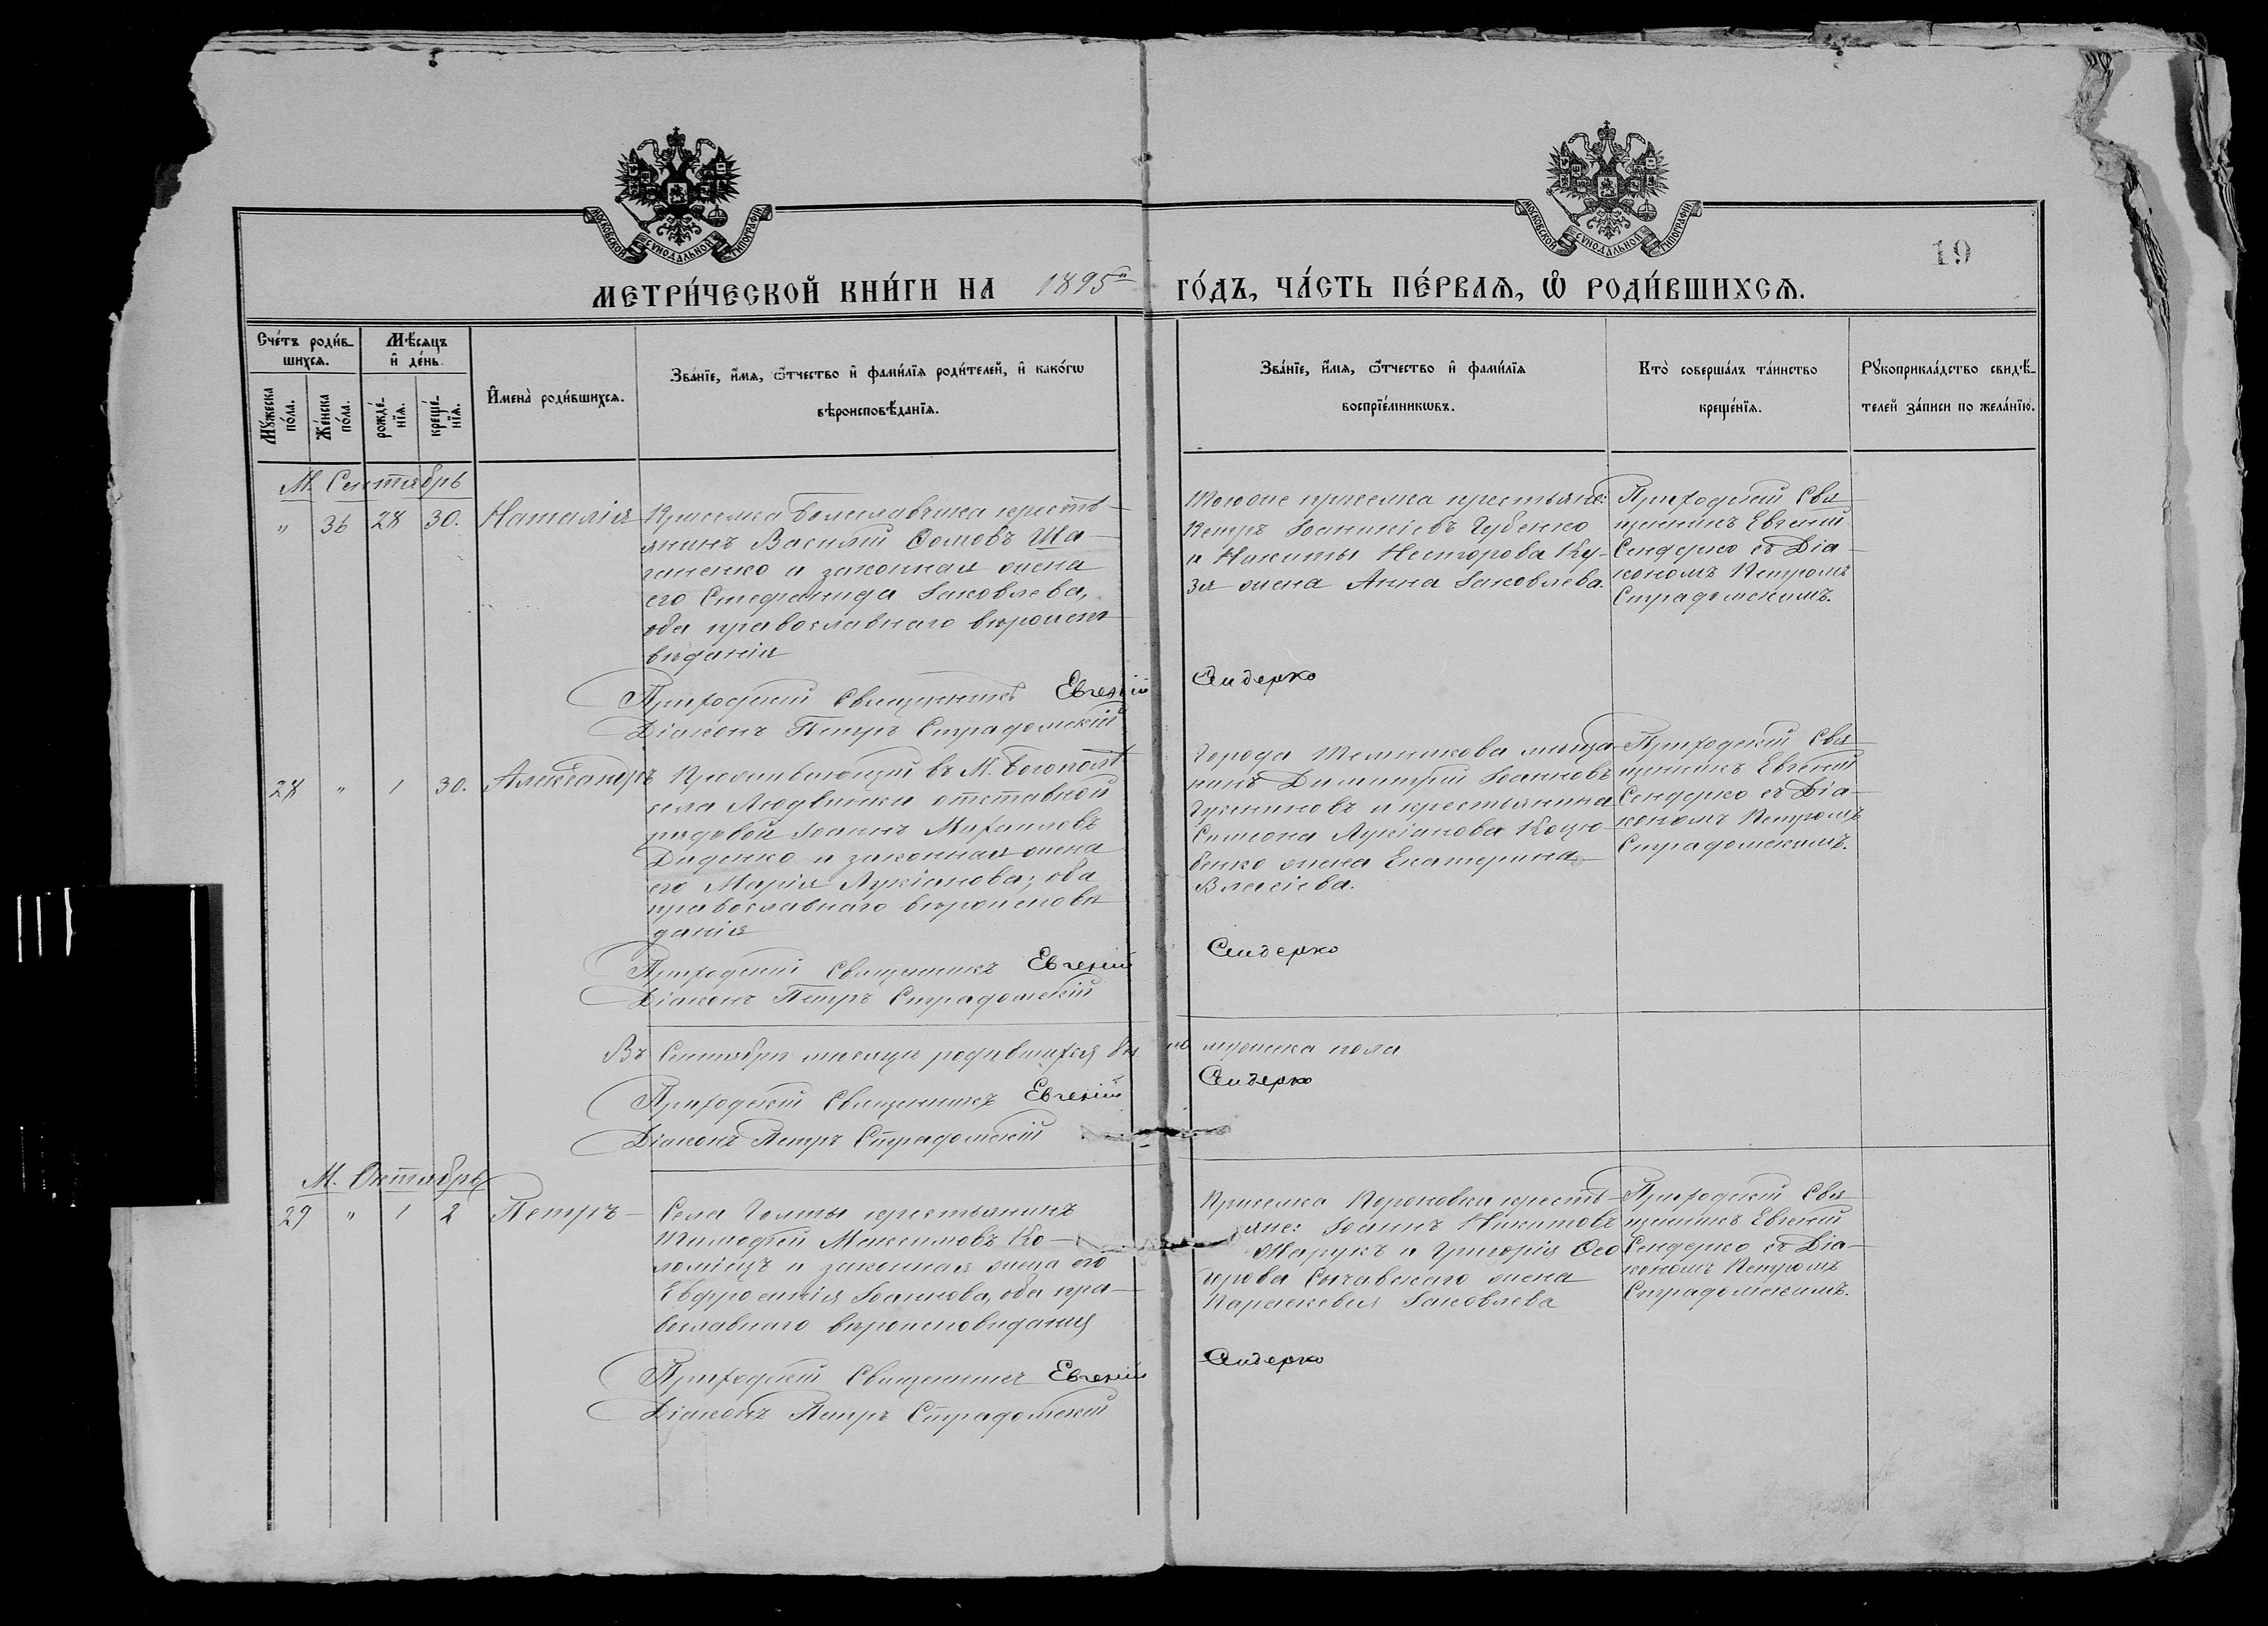 МОСКОВСКОЙ СѴНОДАЛЬНОЙ ТИПОГРАФІИ
МОСКОВСКОЙ СѴНОДАЛЬНОЙ ТИПОГРАФІИ
19
МЕТРИ́ЧЕСКОЙ КНИ́ГИ НА 1895й ГО́ДЪ, ЧА́СТЬ ПЕ́РВАѦ, Ѡ҆ РОДИ́ВШИХСѦ.
Сче́тъ роди́в-
шихсѧ.
Мѣ́сяцъ
и҆ де́нь.
Мꙋ́жеска
по́ла.
Же́нска
по́ла.
рожде́-
нїѧ.
креще́-
нїѧ.
И҆мена̀ роди́вшихсѧ.
Зва́нїе, и҆́мѧ, ѻ҆́тчество и҆ фами́лїѧ роди́телей, и҆ како́гѡ
вѣроисповѣ́данїѧ.
Зва́нїе, и҆́мѧ, ѻ҆́тчество и҆ фами́лїѧ
воспрїе́мникѡвъ.
Кто̀ соверша́лъ та́инство
креще́нїѧ.
Рꙋкоприкла́дство свидѣ́-
телей за́писи по жела́нїю.
М. Сентябрь
" 36 28 30. Наталія
Приселка Болеславчика кресть-
янинъ Василій Ѳомовъ Ша-
ганенко и законная жена
его Стефанида Іаковлева,
оба православнаго вѣроиспо-
вѣданія
Тогоже приселка крестьяне:
Петръ Іоанникіевъ Губенко
и Никиты Несторова Ку-
зя жена Анна Іаковлева.
Приходскій Свя-
щенникъ Евгеній
Сендерко съ Діа-
кономъ Петромъ
Страдомскимъ.
Приходскій Священникъ Евгеній Сендерко
Діаконъ Петръ Страдомскій
28 " 1 30. Александръ
Проживающій въ М. Богополѣ
села Людвинки отставной
рядовой Іоаннъ Михаиловъ
Диденко и законная жена
его Марія Лукіанова; оба
православнаго вѣроисповѣ
данія
Города Темникова мѣща-
нинъ Димитрій Іоанновъ
и крестьянина
Симеона Лукіанова Коцю-
бенко жена Екатерина
Власіева.
Приходскій Свя-
щенникъ Евгеній
Сендерко съ Діа-
кономъ Петромъ
Страдомскимъ.
Приходскій Священникъ Евгеній Сендерко
Діаконъ Петръ Страдомскій
Въ Сентябрѣ мѣсяцѣ родившихся было мужеска пола
Приходскій Священникъ Евгеній Сендерко
Діаконъ Петръ Страдомскій
М. Октябрь
29 " 1 2 Петръ
Села Голты крестьянинъ
Тимофей Максимовъ Ко-
ломіецъ и законная жена его
Евфросинія Іоаннова, оба пра-
вославнаго вѣроисповѣданія
Приселка кресть-
яне: Іоаннъ Никитовъ
Марукъ и Григорія Ѳео
дорова Сычавскаго жена
Параскевия Іаковлева
Приходскій Свя-
щенникъ Евгеній
Сендерко съ Діа-
кономъ Петромъ
Страдомскимъ.
Приходскій Священникъ Евгеній Сендерко
Діаконъ Петръ Страдомскій